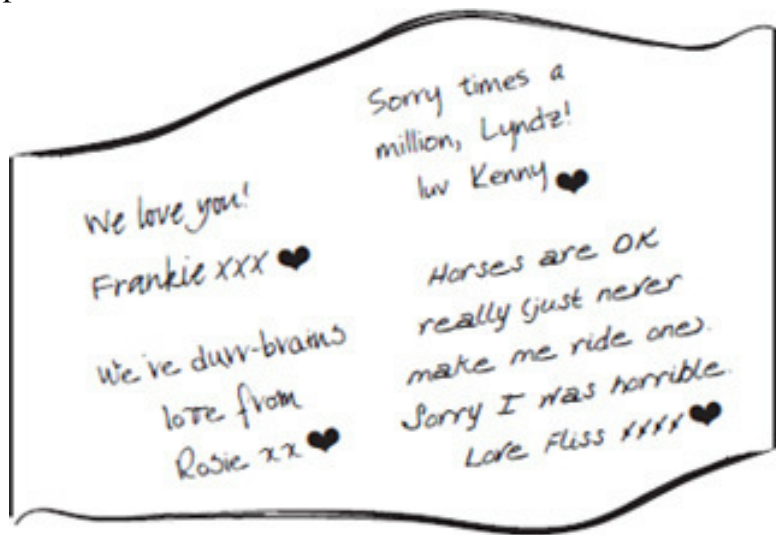 We love you!
Frankie xxx ❤
We're durr-brains
love from
Rosie xx ❤
Sorry times a
million, Lyndz!
luv Kenny ❤
Horses are OK
really (just never
make me ride one).
Sorry I was horrible.
Love Fliss xxxx ❤